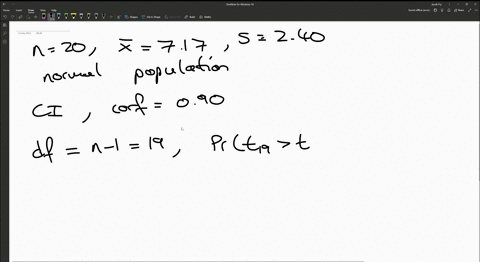 n=20, x̄ = 7.17, s = 2.40
normal population
CI, conf = 0.90
df = n-1 = 19, Pr(t₁₉ > t